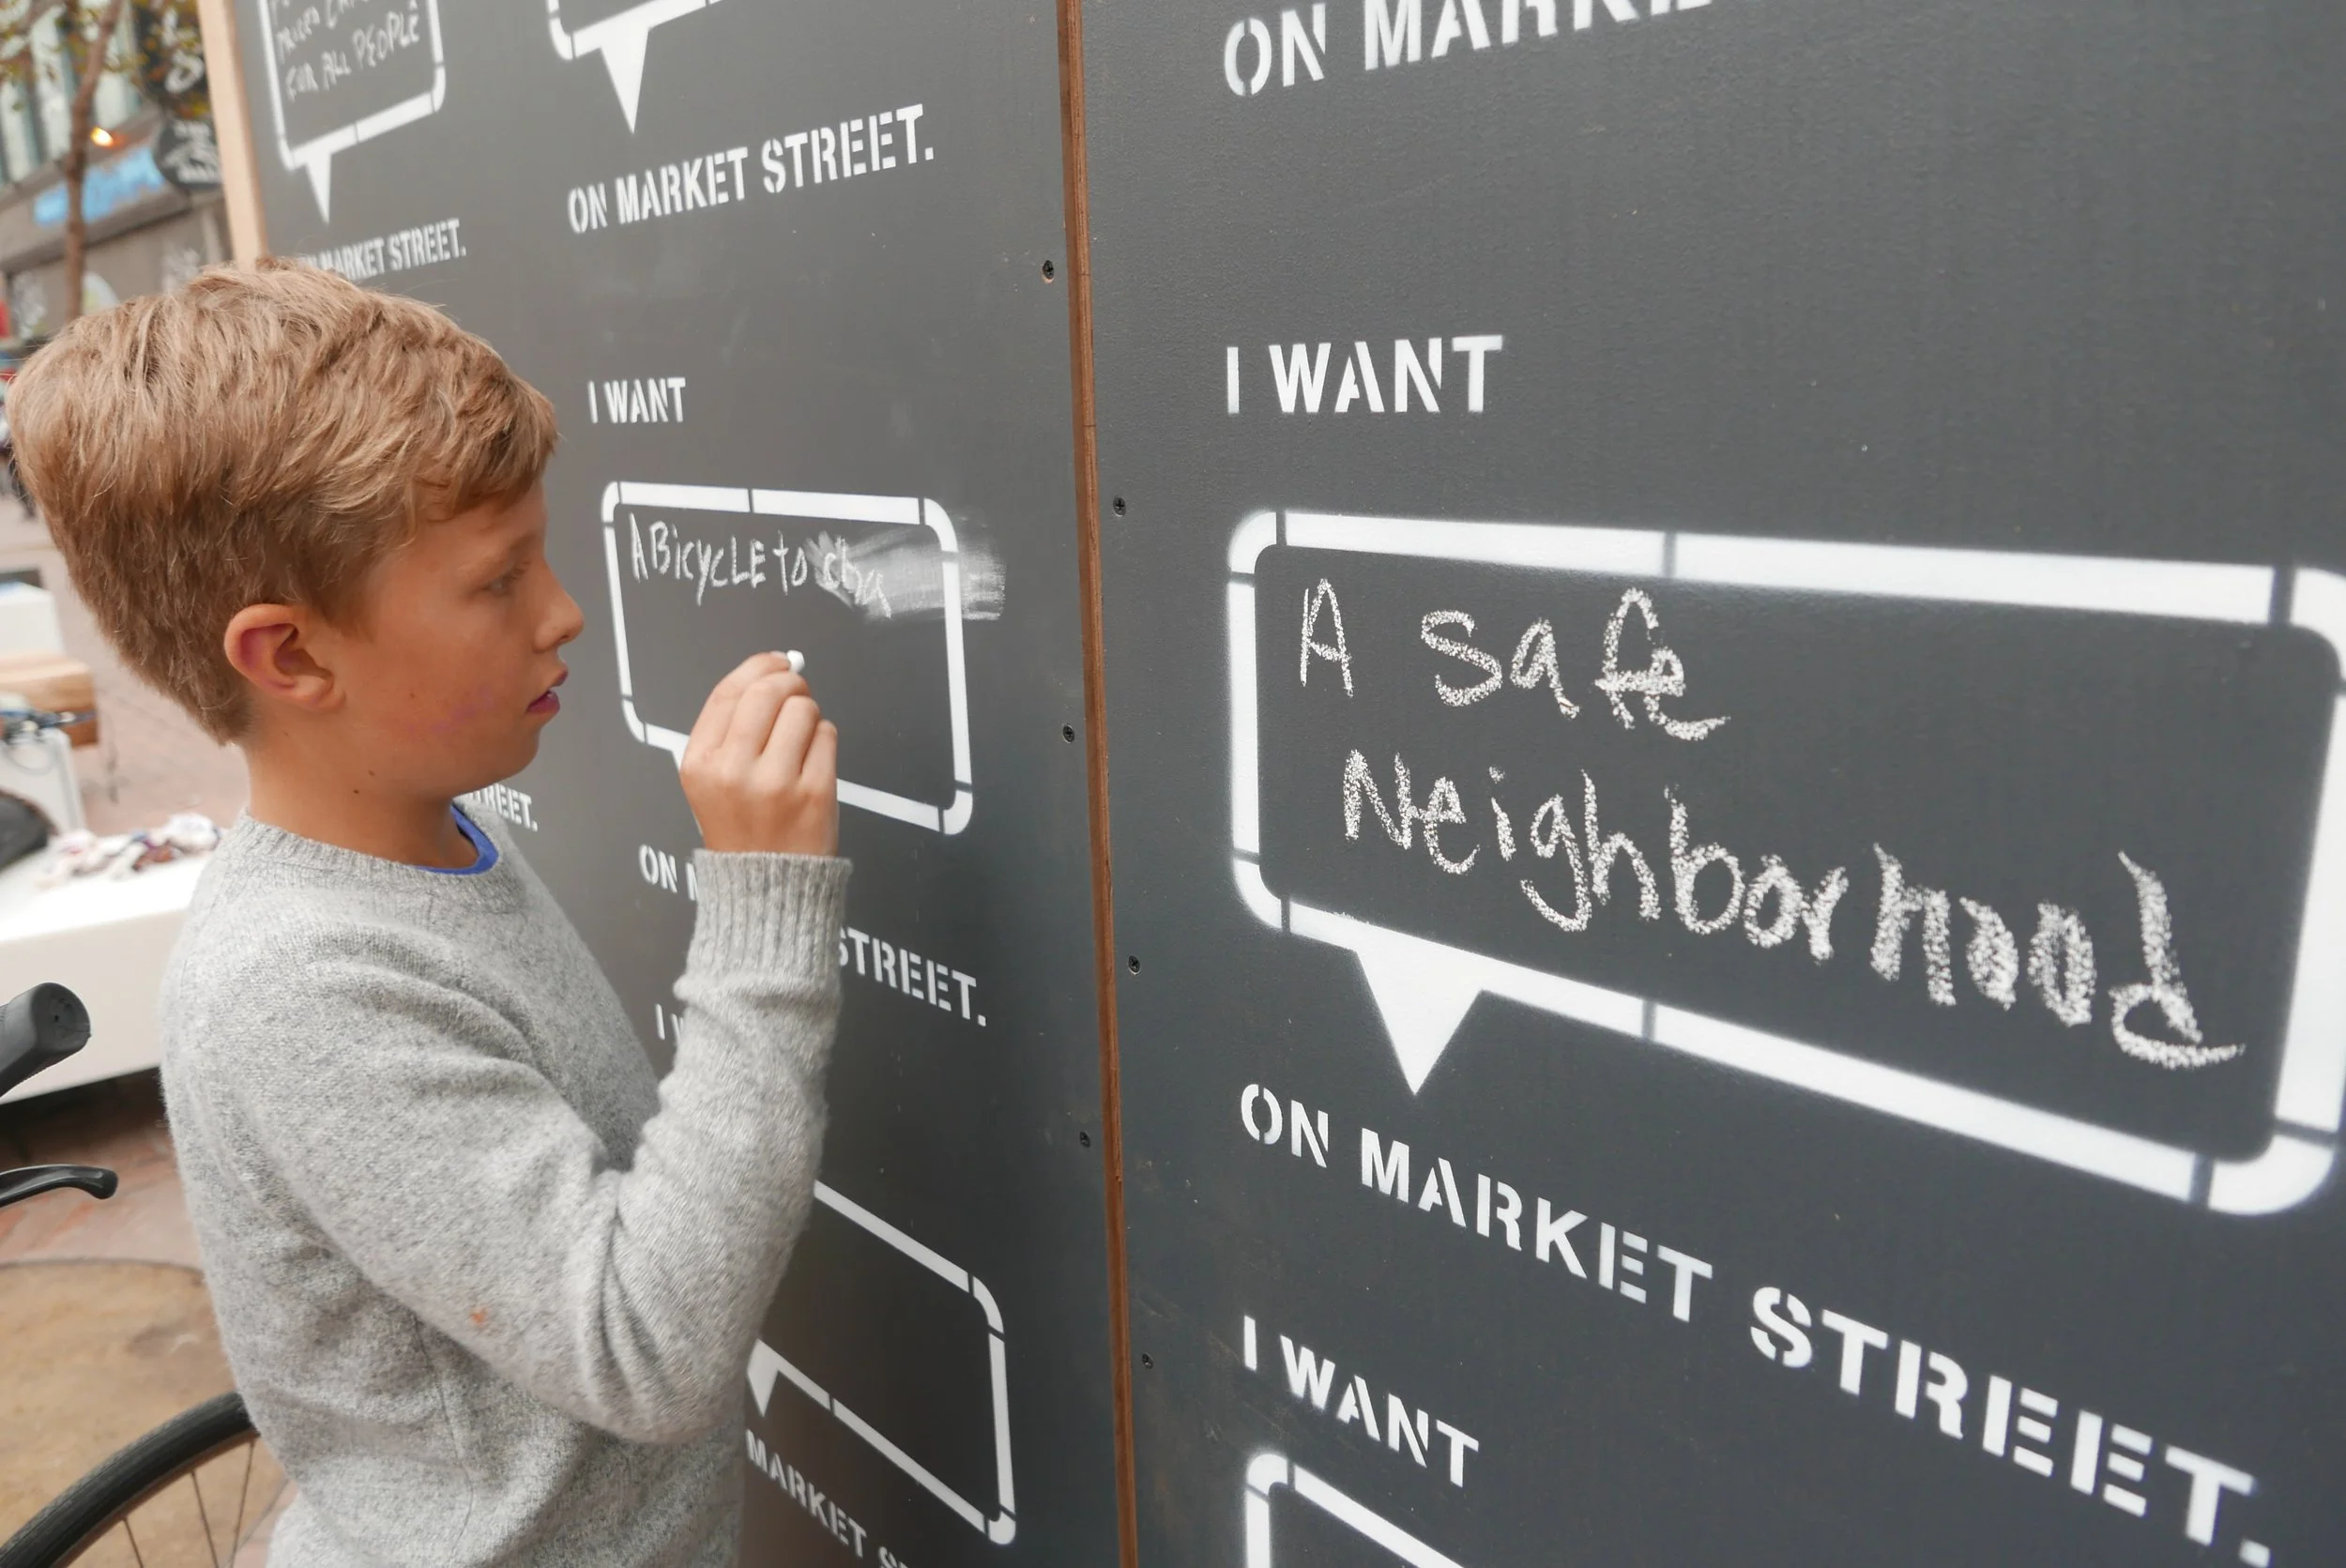 FOR ALL PEOPLE
MARKET STREET.
ON MARKET STREET.
I WANT
A BicycLE to
ON
STREET.
STREET.
I
MARKET
ON
I WANT
A safe
Neighborhood
ON MARKET STREET.
I WANT